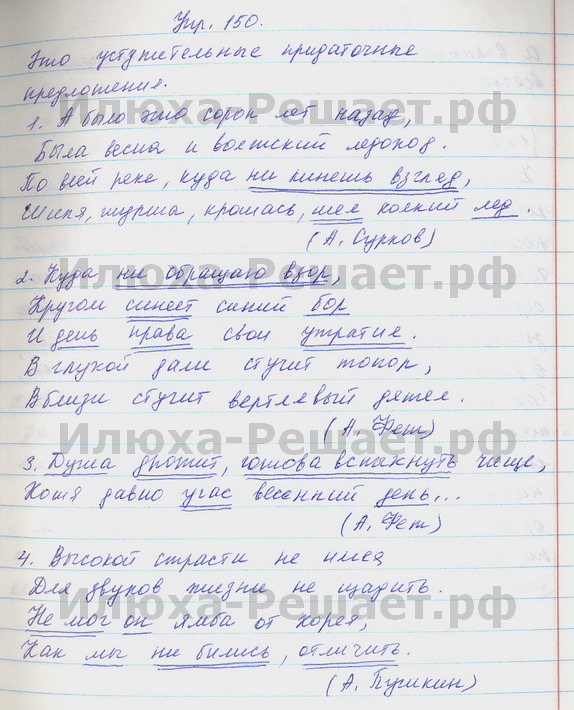 Упр. 150.
Это уступительные придаточные
предложения.
1. А было это сорок лет назад,
Была весна и волжский ледоход.
По всей реке, куда ни кинешь взгляд,
Шипя, шурша, крошась, шел колкий лед.
(А. Сурков)
2. Куда ни обращаю взор,
Кругом синеет синий бор
И день права свои утратил.
В глухой дали стучит топор,
Вблизи стучит вертлявый дятел.
(А. Фет)
3. Душа дрожит, готова вспыхнуть чище,
Хотя давно угас весенний день...
(А. Фет)
4. Высокой страсти не имея
Для звуков жизни не щадить.
Не мог он ямба от хорея,
Как мы ни бились, отличить.
(А. Пушкин)
Илюха-Решает.рф
Илюха-Решает.рф
Илюха-Решает.рф
Илюха-Решает.рф
Илюха-Решает.рф
Илюха-Решает.рф